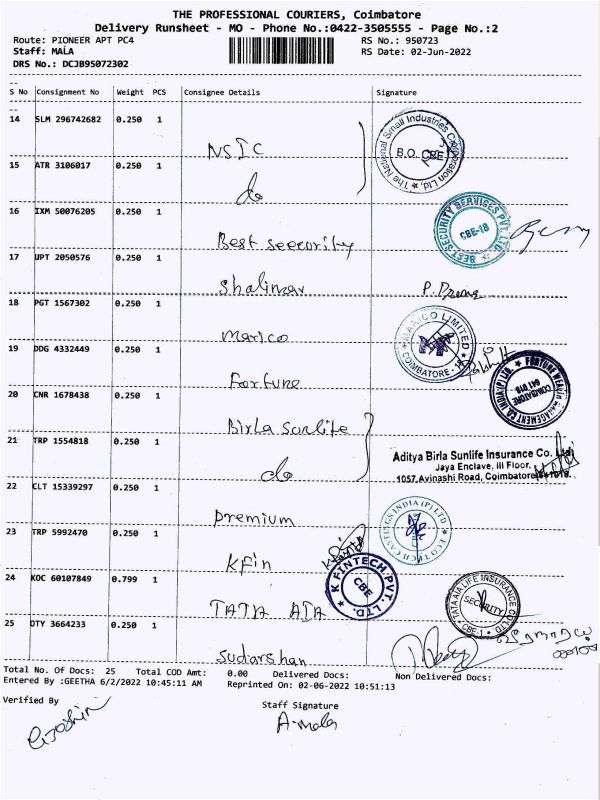 THE PROFESSIONAL COURIERS, Coimbatore
Delivery Runsheet - MO - Phone No.:0422-3505555 - Page No.:2
Route: PIONEER APT PC4
RS No.: 950723
Staff: MALA
RS Date: 02-Jun-2022
DRS No.: DCJB95072302
S No Consignment No Weight PCS Consignee Details Signature
14 SLM 296742682 0.250 1 NSIC
The National Small Industries Corporation Ltd. B.O. CBE
15 ATR 3106017 0.250 1 do
16 IXM 50076205 0.250 1 Best seecurity
BEST SECURITY SERVICES PVT. LTD CBE-18
17 UPT 2050576 0.250 1 Shalimar
18 PGT 1567302 0.250 1 Marico
MARICO LIMITED COIMBATORE - 18
19 DDG 4332449 0.250 1 Fortune
FORTUNE WEALTH MANAGEMENT CO. INDIA (P) LTD COIMBATORE 641 018
20 CNR 1678438 0.250 1 Birla sunlife
21 TRP 1554818 0.250 1 do
Aditya Birla Sunlife Insurance Co. Ltd
Jaya Enclave, III Floor,
1057,Avinashi Road, Coimbatore
22 CLT 15339297 0.250 1 premium
CASTINGS INDIA (P) LTD
23 TRP 5992470 0.250 1 KFin
K FINTECH PVT. LTD. CBE
24 KOC 60107849 0.799 1 TATA AIA
TATA AIA LIFE INSURANCE CO LTD SECURITY CBE-1
25 DTY 3664233 0.250 1 Sudarshan
Total No. Of Docs: 25 Total COD Amt: 0.00 Delivered Docs: Non Delivered Docs:
Entered By :GEETHA 6/2/2022 10:45:11 AM Reprinted On: 02-06-2022 10:51:13
Verified By
Staff Signature
A-mala